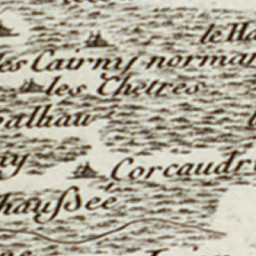 le Ha
les Cairny norman
les Chetres
alhau
ay
Corcaudr
hauſsée